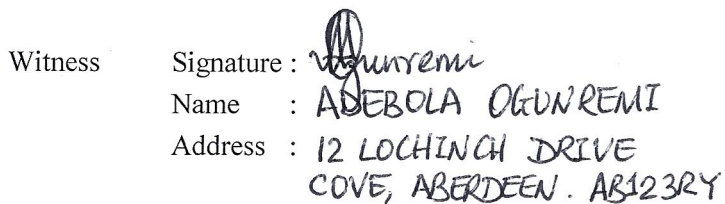 Witness Signature : Ogunremi
Name : ADEBOLA OGUNREMI
Address : 12 LOCHINCH DRIVE
COVE, ABERDEEN. AB123RY